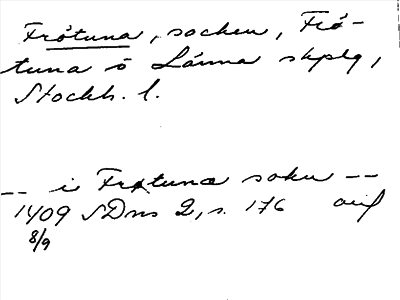 Frötuna, socken, Frö-
tuna o Länna skplg,
Stockh. l.
-- i Frøtuna sokn --
1409 SDns 2, s. 176 avif
8/9